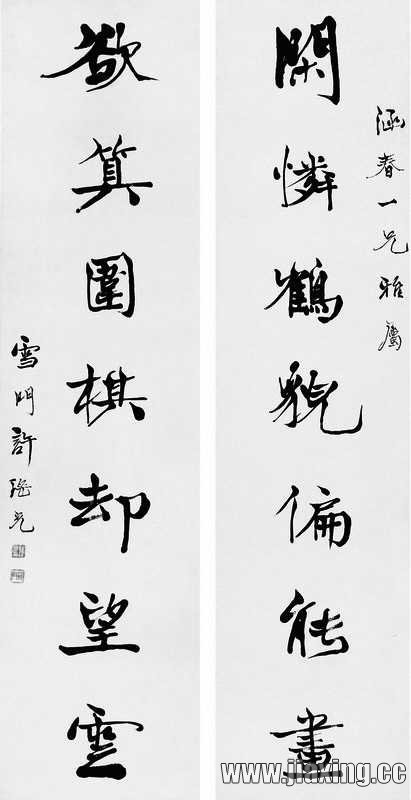 涵春一兄雅屬
閑憐鶴貌偏能畫
欲算圍棋却望雲
雪門許瑤光
www.jiaxing.cc